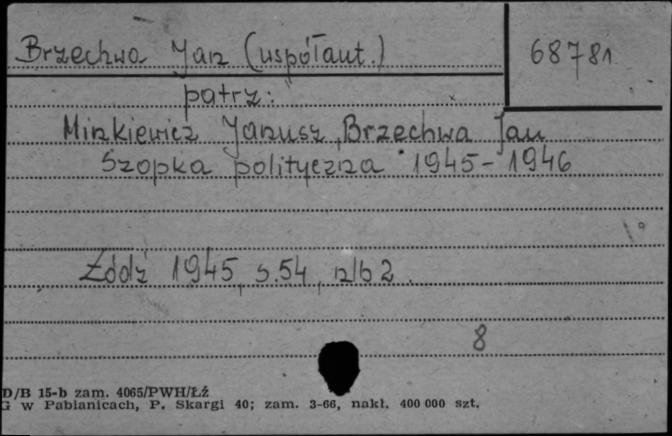 Brzechwa Jan (współaut.)
68781
patrz:
Minkiewicz Janusz, Brzechwa Jan
Szopka polityczna 1945-1946
Łódź 1945, s.54, nlb 2.
8
D/B 15-b zam. 4065/PWH/Łź
G w Pabianicach, P. Skargi 40; zam. 3-66, nakł. 400 000 szt.